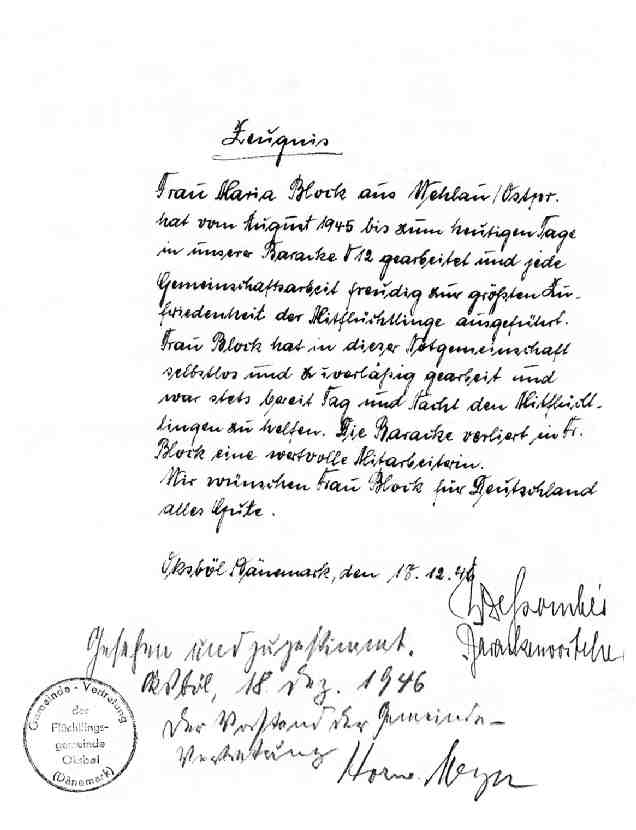 Zeugnis
Frau Maria Block aus Wehlau/Ostpr.
hat vom August 1945 bis zum heutigen Tage
in unserer Baracke 12 gearbeitet und jede
Gemeinschaftsarbeit freudig zur größten Zu-
friedenheit der Mitflüchtlinge ausgeführt.
Frau Block hat in dieser Notgemeinschaft
selbstlos und zuverläßig gearbeit und
war stets bereit Tag und Nacht den Mitflücht-
lingen zu helfen. Die Baracke verliert in Fr.
Block eine wertvolle Mitarbeiterin.
Wir wünschen Frau Block für Deutschland
alles Gute.
Oksböl Dänemark, den 18.12.46
Barackenvorsteher
Gesehen und zugestimmt.
Oksböl, 18. Dez. 1946
Der Vorstand der Gemeinde-
Vertretung
Meyer
Gemeinde-Vertretung
der
Flüchlings-
gemeinde
Oksbøl
(Dänemark)